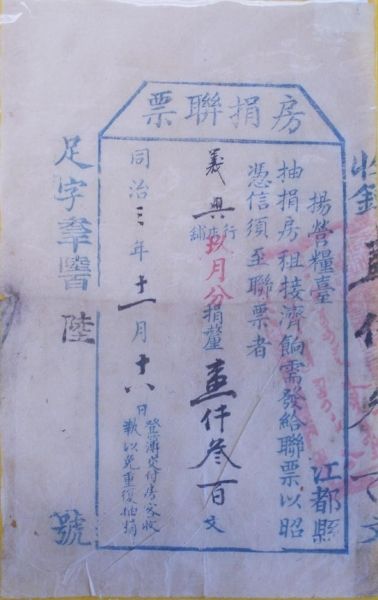 房捐聯票
收錢
揚營糧臺 江都縣
抽捐房租接濟餉需發給聯票以昭
憑信須至聯票者
義興 行店鋪 玖月分捐釐 壹仟叁百文
同治三年十一月十八日
登簿交付房客收
執以免重復抽捐
足字 陸 號